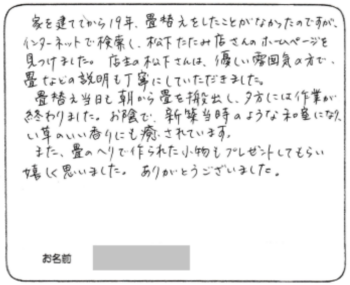 家を建ててから19年、畳替えをしたことがなかったのですが、
インターネットで検索し、松下たたみ店さんのホームページを
見つけました。店主の松下さんは、優しい雰囲気の方で、
畳などの説明も丁寧にしていただきました。
畳替え当日も朝から畳を搬出し、夕方には作業が
終わりました。お陰で、新築当時のような和室になり、
い草のいい香りにも癒されています。
また、畳のヘリで作られた小物もプレゼントしてもらい
嬉しく思いました。ありがとうございました。
お名前